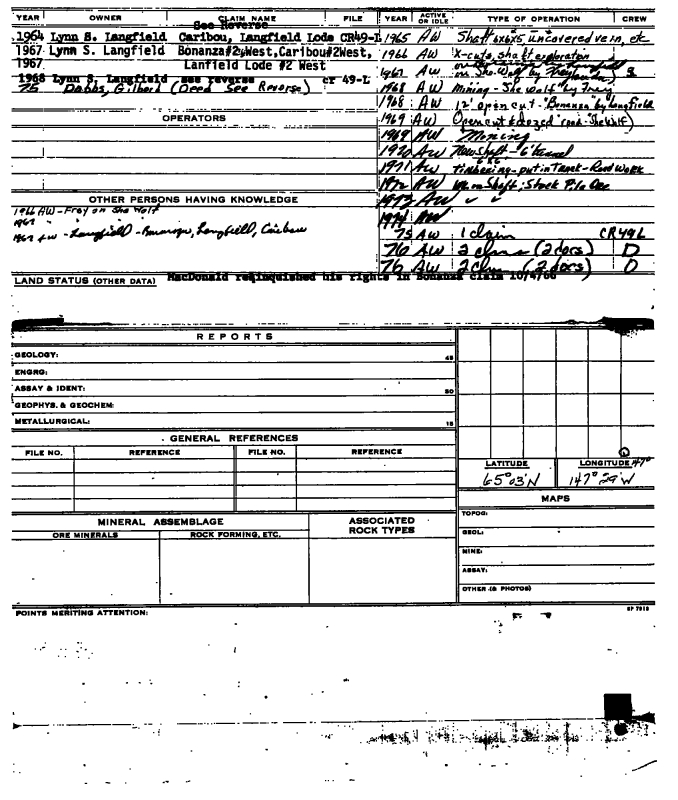 YEAR OWNER CLAIM NAME FILE YEAR ACTIVE OR IDLE TYPE OF OPERATION CREW
See Reverse
1964 Lynn S. Langfield Caribou, Langfield Lode CR49-L 1965 AW Shaft 6x6x5, uncovered vein, etc
1967 Lynn S. Langfield Bonanza#2West,Caribou#2West, 1966 AW X-cuts, shaft exploration
1967 Lanfield Lode #2 West
1967 AW on She-Wolf by Frey
1968 Lynn S. Langfield see reverse cr 49-L 1968 AW Mining - She Wolf by Frey
75 Dabbs, Gilbert (Deed See Reverse) 1968 AW 12' open cut - "Bonanza" by Langfield
OPERATORS
1969 AW Open cut & dozed road - She Wolf)
1969 AW Mining
1970 AW New Shaft - 6' tunnel
1971 AW timbering - put in Tank - Road Work
1972 AW Shaft; Stock Pile Ore
OTHER PERSONS HAVING KNOWLEDGE
1973 AW " "
1966 AW - Frey on She Wolf
1974 AW
1967 "
1967 AW - Langfield - Bonanza, Langfield, Caribou
75 AW 1 claim CR49L
76 AW 2 clms (2 dors) D
76 AW 2 clm (2 dors) D
LAND STATUS (OTHER DATA) MacDonald relinquished his rights in Bonanza claim 10/4/66
REPORTS
GEOLOGY: 45
ENGRG:
ASSAY & IDENT: 50
GEOPHYS. & GEOCHEM:
METALLURGICAL: 15
GENERAL REFERENCES
FILE NO. REFERENCE FILE NO. REFERENCE
LATITUDE LONGITUDE 147°
65°03'N 147°29'W
MAPS
TOPOG:
MINERAL ASSEMBLAGE ASSOCIATED ROCK TYPES
ORE MINERALS ROCK FORMING, ETC.
GEOL:
MINE:
ASSAY:
OTHER (& PHOTOS)
POINTS MERITING ATTENTION: